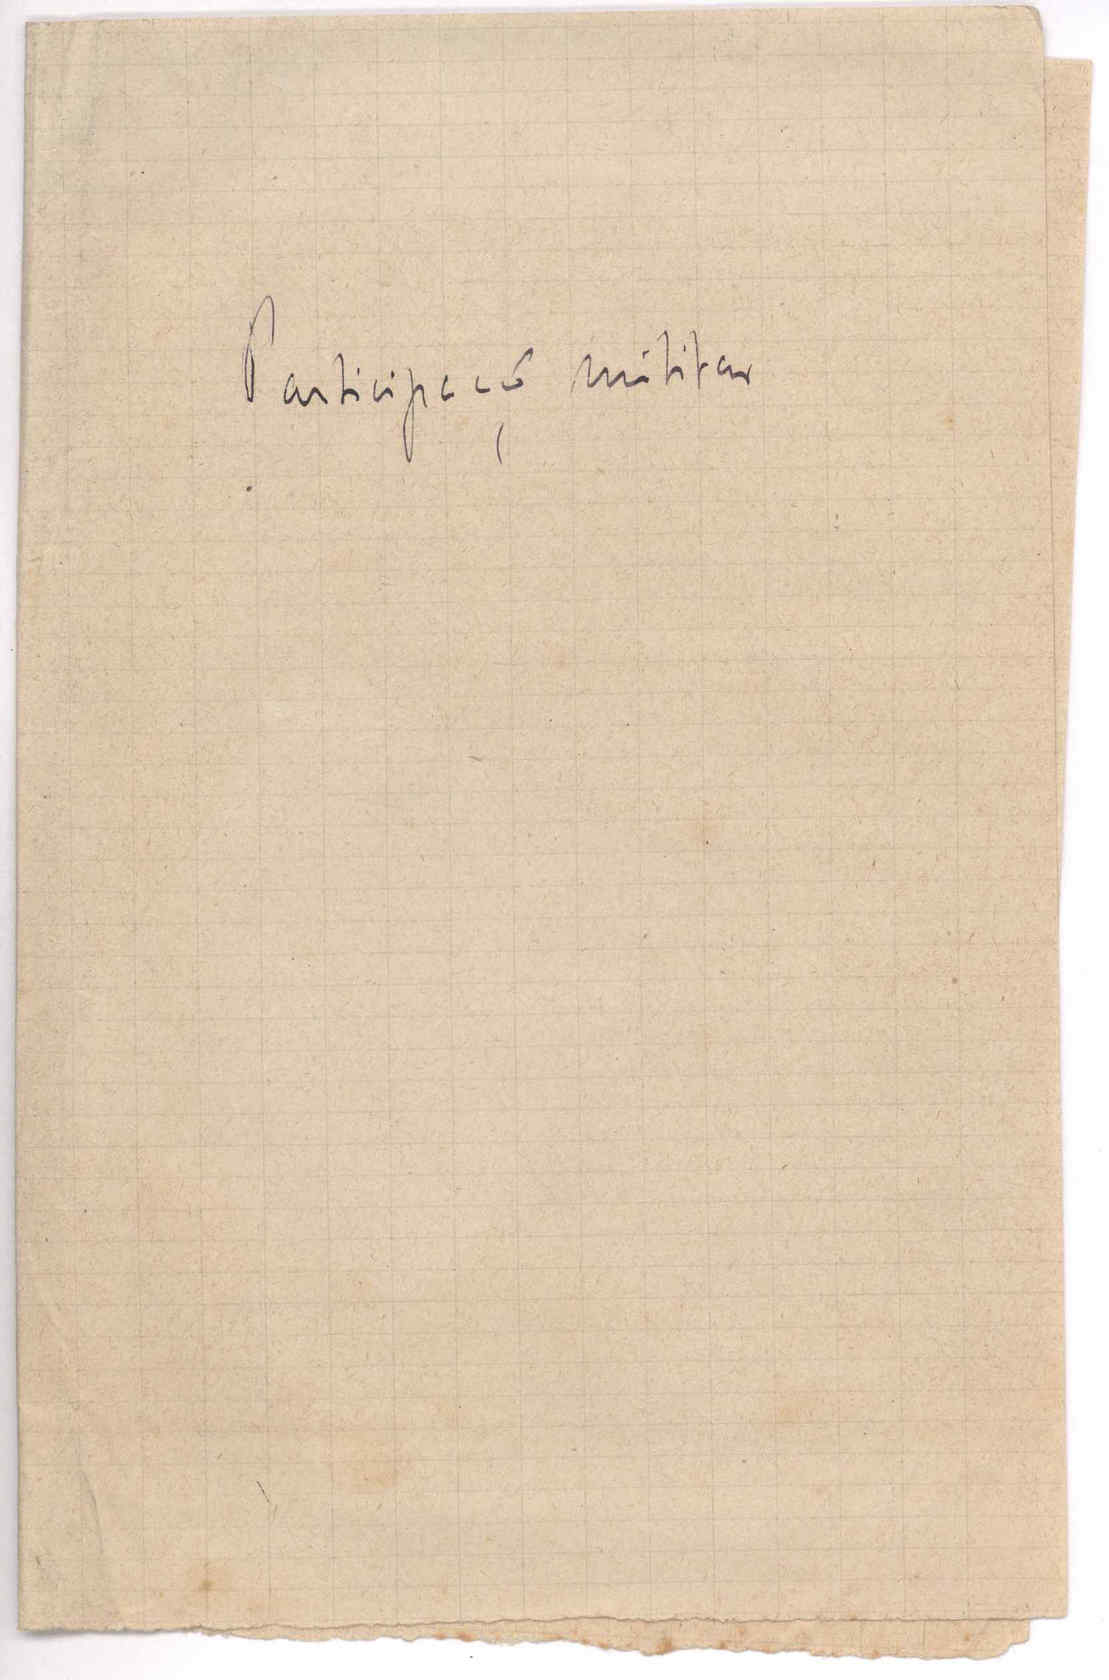 Participació militar